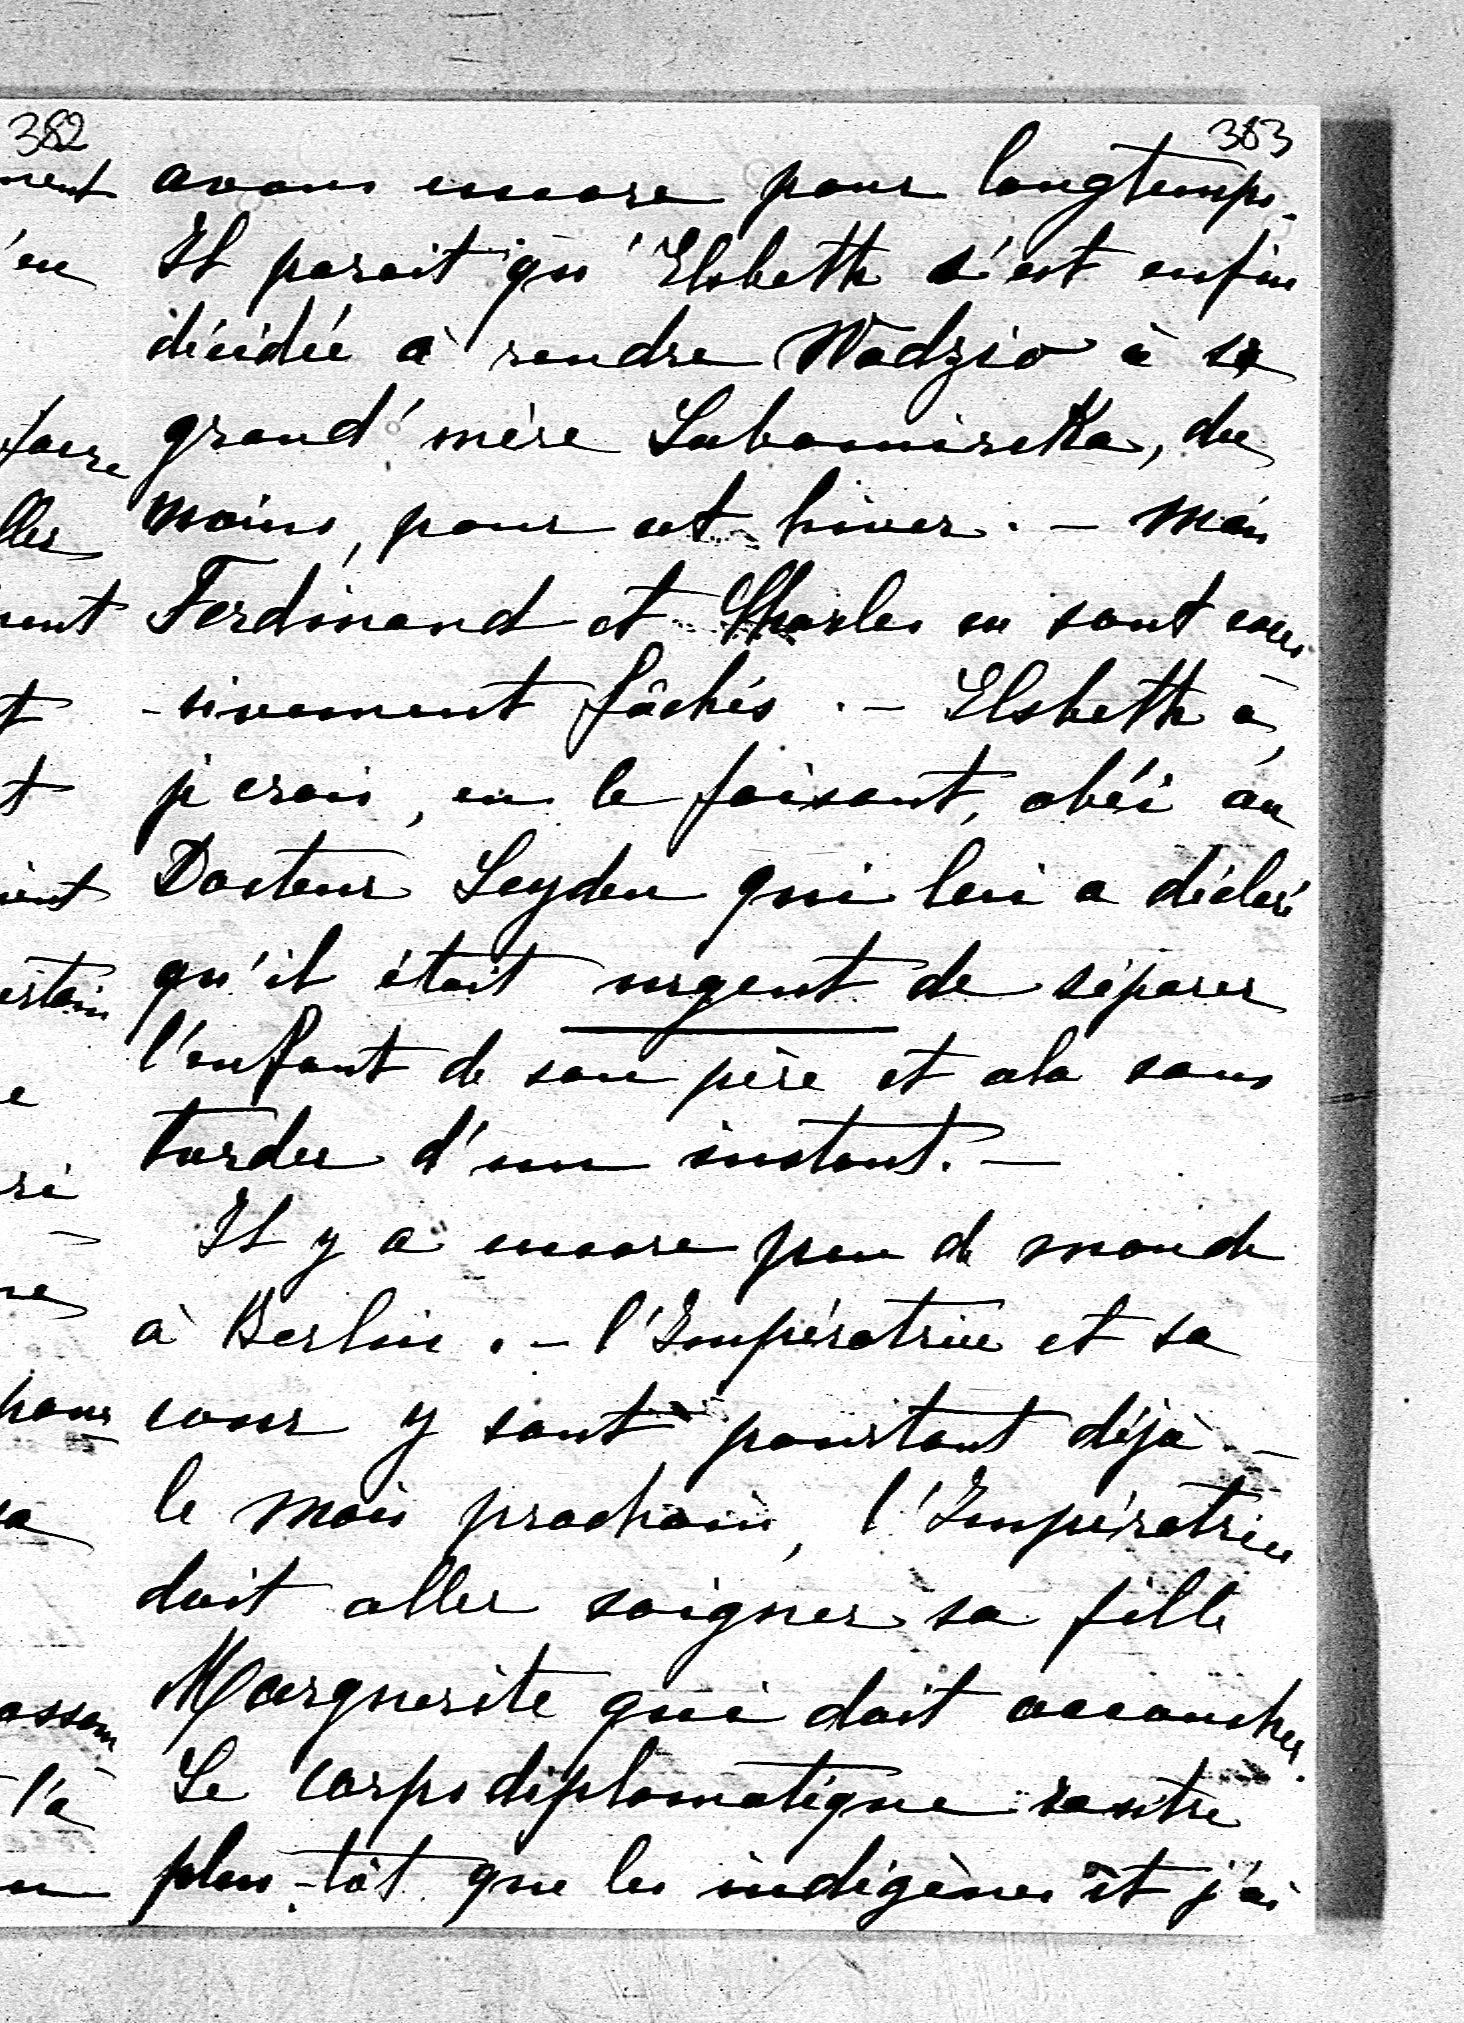 382
383
avons encore pour longtemps.
Il parait qu'Elsbeth s'est enfin
décidée à rendre Wadzio à sa
grand'mère Lubomirska, du
moins, pour cet hiver. - Mais
Ferdinand et Charles en sont
-sivement fâchés. - Elsbeth a,
je crois, en le faisant, obéi au
Docteur Leyden qui lui a déclaré
qu'il était urgent de séparer
l'enfant de son père et cela sans
tarder d'un instant. -
Il y a encore peu de monde
à Berlin. - l'Impératrice et sa
cour y sont pourtant déjà. -
le mois prochain, l'Impératrice
doit aller soigner sa fille
Marguerite qui doit accoucher.
Le corps diplomatique rentre
plus-tôt que les indigènes et j'ai